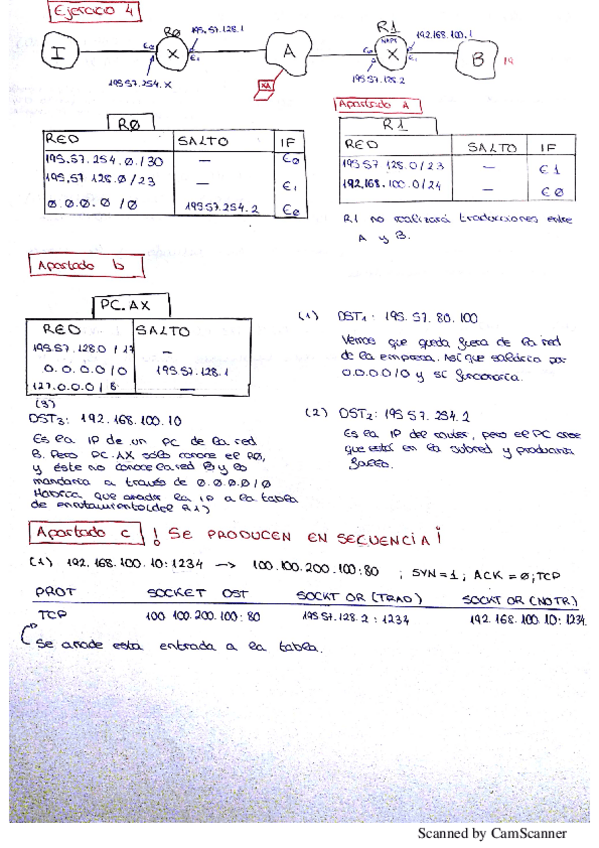 Ejercicio 4
R0
195.57.128.1
R1
NAPT
192.168.100.1
I
E0
X
E1
A
E0
X
E1
B
195.57.254.X
XA
195.57.128.2
Apartado A
R0
RED SALTO IF
195.57.254.0/30 — E0
195.57.128.0/23 — E1
0.0.0.0/0 195.57.254.2 E0
R1
RED SALTO IF
195.57.128.0/23 — E1
192.168.100.0/24 — E0
R1 no realizará traducciones entre
A y B.
Apartado b
PC.AX
RED SALTO
195.57.128.0/17 —
0.0.0.0/0 195.57.128.1
127.0.0.0/8 —
(1) DST1: 195.57.80.100
Vemos que queda fuera de la red
de la empresa. Así que saldría por
0.0.0.0/0 y sí funcionaría.
(2) DST2: 195.57.254.2
Es la IP del router, pero el PC cree
que está en la subred y produciría
fallo.
(3)
DST3: 192.168.100.10
Es la IP de un PC de la red
B. Pero PC.AX sólo conoce el R0,
y éste no conoce la red B y lo
mandaría a través de 0.0.0.0/0
Habría que añadir la IP a la tabla
de enrutamiento (del R1)
Apartado c ! SE PRODUCEN EN SECUENCIA!
(1) 192.168.100.10:1234 -> 100.100.200.100:80 ; SYN=1; ACK=0; TCP
PROT SOCKET DST SOCKT OR (TRAD) SOCKT OR (NO TR)
TCP 100.100.200.100:80 195.57.128.2:1234 192.168.100.10:1234
Se añade esta entrada a la tabla.
Scanned by CamScanner